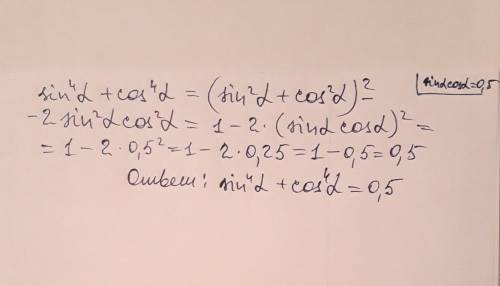 sin⁴α + cos⁴α = (sin²α + cos²α)² –
sinαcosα=0,5
-2 sin²α cos²α = 1 - 2 · (sinα cosα)² =
= 1 - 2 · 0,5² = 1 - 2 · 0,25 = 1 - 0,5 = 0,5
Ответ: sin⁴α + cos⁴α = 0,5